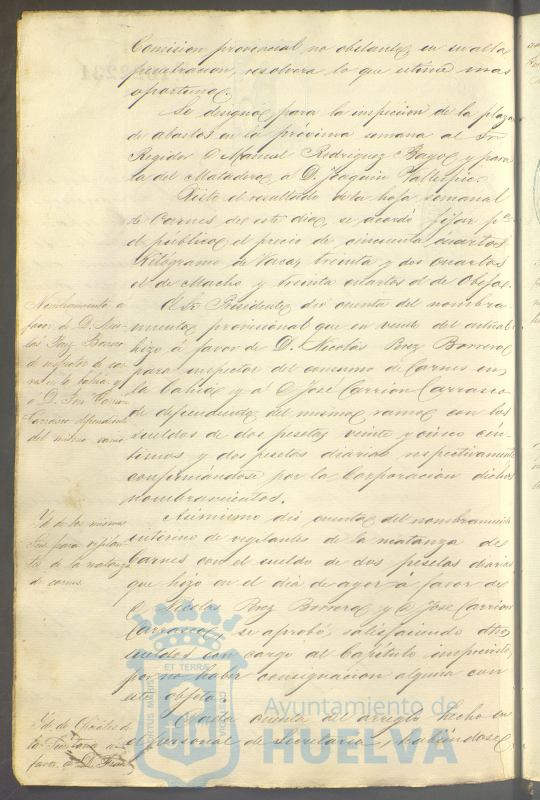 Comision provincial, no obstante, en su alta
penetracion, resolvera lo que estime mas
oportuno.
Se designó para la inspeccion de la plaza
de abastos en la próxima semana al Sr.
Regidor D. Manuel Rodriguez Bayo y para
la del Matadero á D. Joaquin
Visto el resultado de la hoja semanal
de Carnes de este dia, se acordó fijar pª
el público el precio de cincuenta cuartos
Kilógramo de Vaca, treinta y dos cuartos
id de Macho y treinta cuartos id de Oveja.
Nombramiento a
favor de D. Nico-
las Baez Borrero
de inspector de car-
nes en la bahia y
a D. José Carrion
Carrasco dependiente
del mismo ramo
El Sr Presidente dió cuenta del nombra-
miento provisional que en del actual
hizo á favor de D. Nicolás Baez Borrero
para inspector del consumo de Carnes en
la bahia y á D José Carrion Carrasco
de dependiente del mismo ramo con los
sueldos de dos pesetas veinte y cinco cén-
timos y dos pesetas diarias respectivamente
confirmándose por la Corporacion dichos
nombramientos.
Yd de los mismos
para vigilan-
tes de la matanza
de carnes.
Asimismo dió cuenta del nombramiento
interino de vigilantes de la matanza de
Carnes con el sueldo de dos pesetas diarias
que hizo en el dia de ayer á favor de
D Nicolas Baez Borrero y D José Carrion
Carrasco, se aprobó, satisfaciendo dhos
sueldos con cargo al Capitulo imprevistos
por no haber consignacion alguna con
ese objeto.
Yd. de Oficiales de
la Secretaria a
favor de D. Fran
Dada cuenta del arreglo hecho en
el personal de Secretaria, habiéndose
PORTUS MARIS
ET TERRÆ
CUSTODIA
Ayuntamiento de
HUELVA